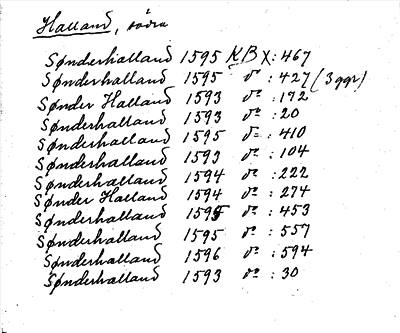 Halland, södra
Sønderhalland 1595 KB X: 467
Sønderhalland 1595 do: 427 (3 ggr)
Sønder Halland 1593 do: 172
Sønderhalland 1593 do: 20
Sønderhalland 1595 do: 410
Sønderhalland 1593 do: 104
Sønderhalland 1594 do: 222
Sønder Halland 1594 do: 274
Sønderhalland 1595 do: 453
Sønderhalland 1595 do: 557
Sønderhalland 1596 do: 594
Sønderhalland 1593 do: 30